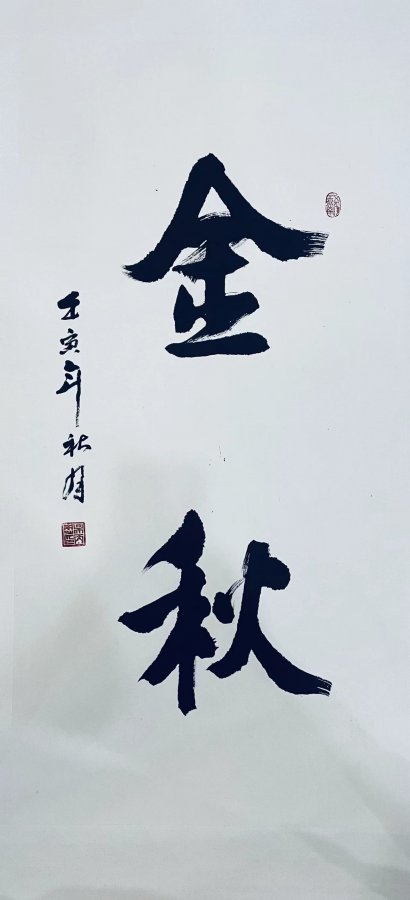 金秋
壬寅年秋月